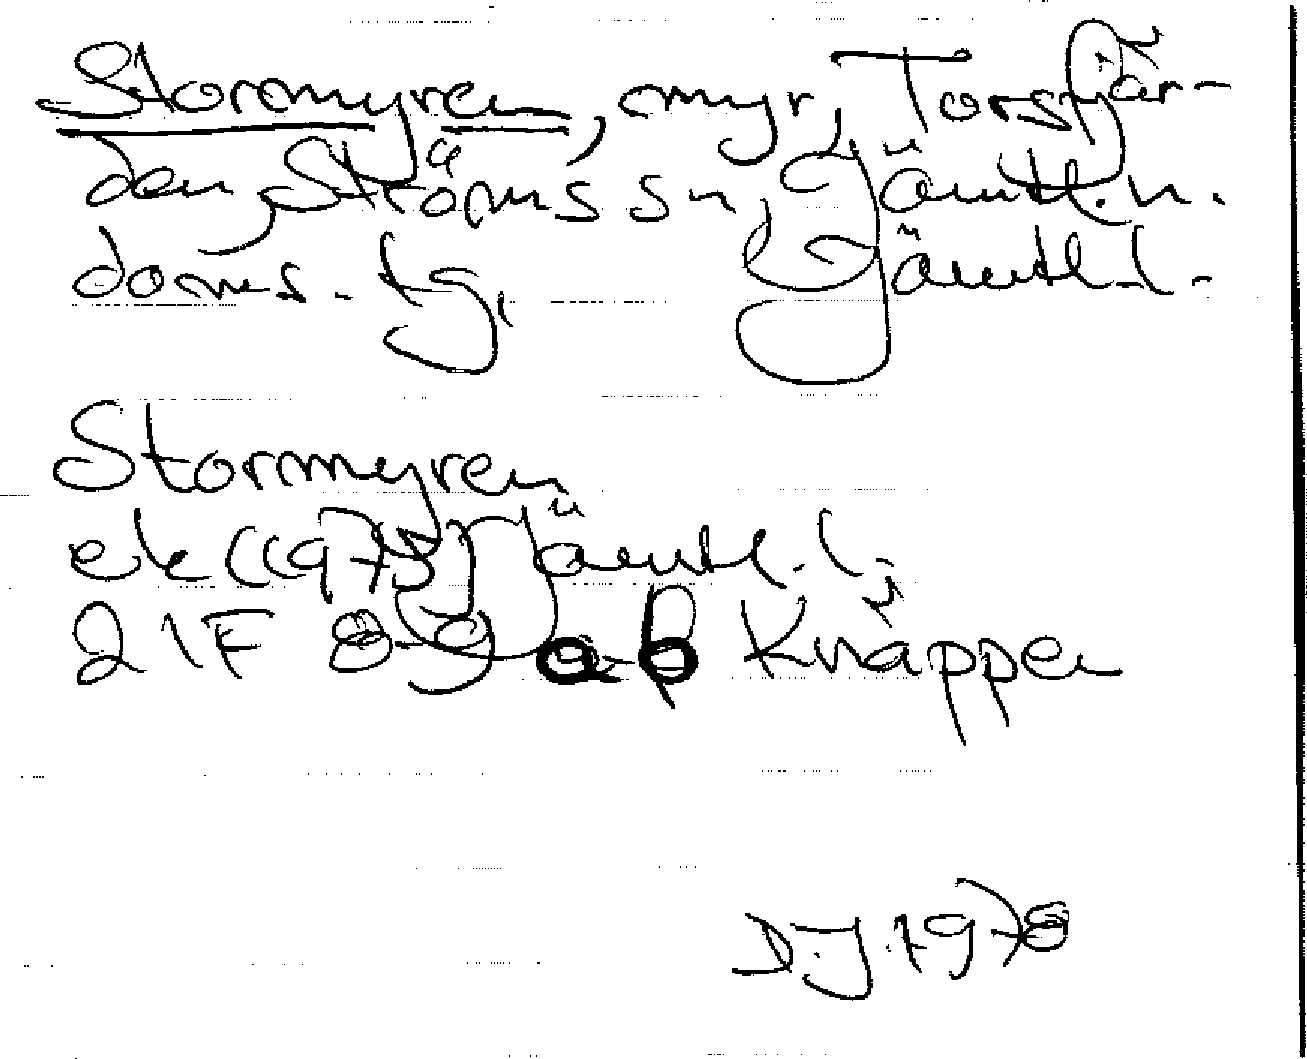 Stormyren, myr, Torsfjär-
den, Ströms sn, Jämtl. n.
doms. tg, Jämtl. l.
Stormyren
ek (1975) Jämtl. l.
21F 8-9 a-b Knäppen
D.J. 1978